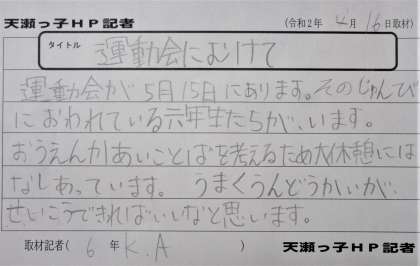 天瀬っ子HP記者 (令和2年 4月 16日取材)
タイトル 運動会にむけて
運動会が5月15日にあります。そのじゅんび
におわれている六年生たちが、います。
おうえんかあいことばを考えるため大休憩には
なしあっています。 うまくうんどうかいが、
せいこうできればいいなと思います。
取材記者( 6 年 K.A ) 天瀬っ子HP記者